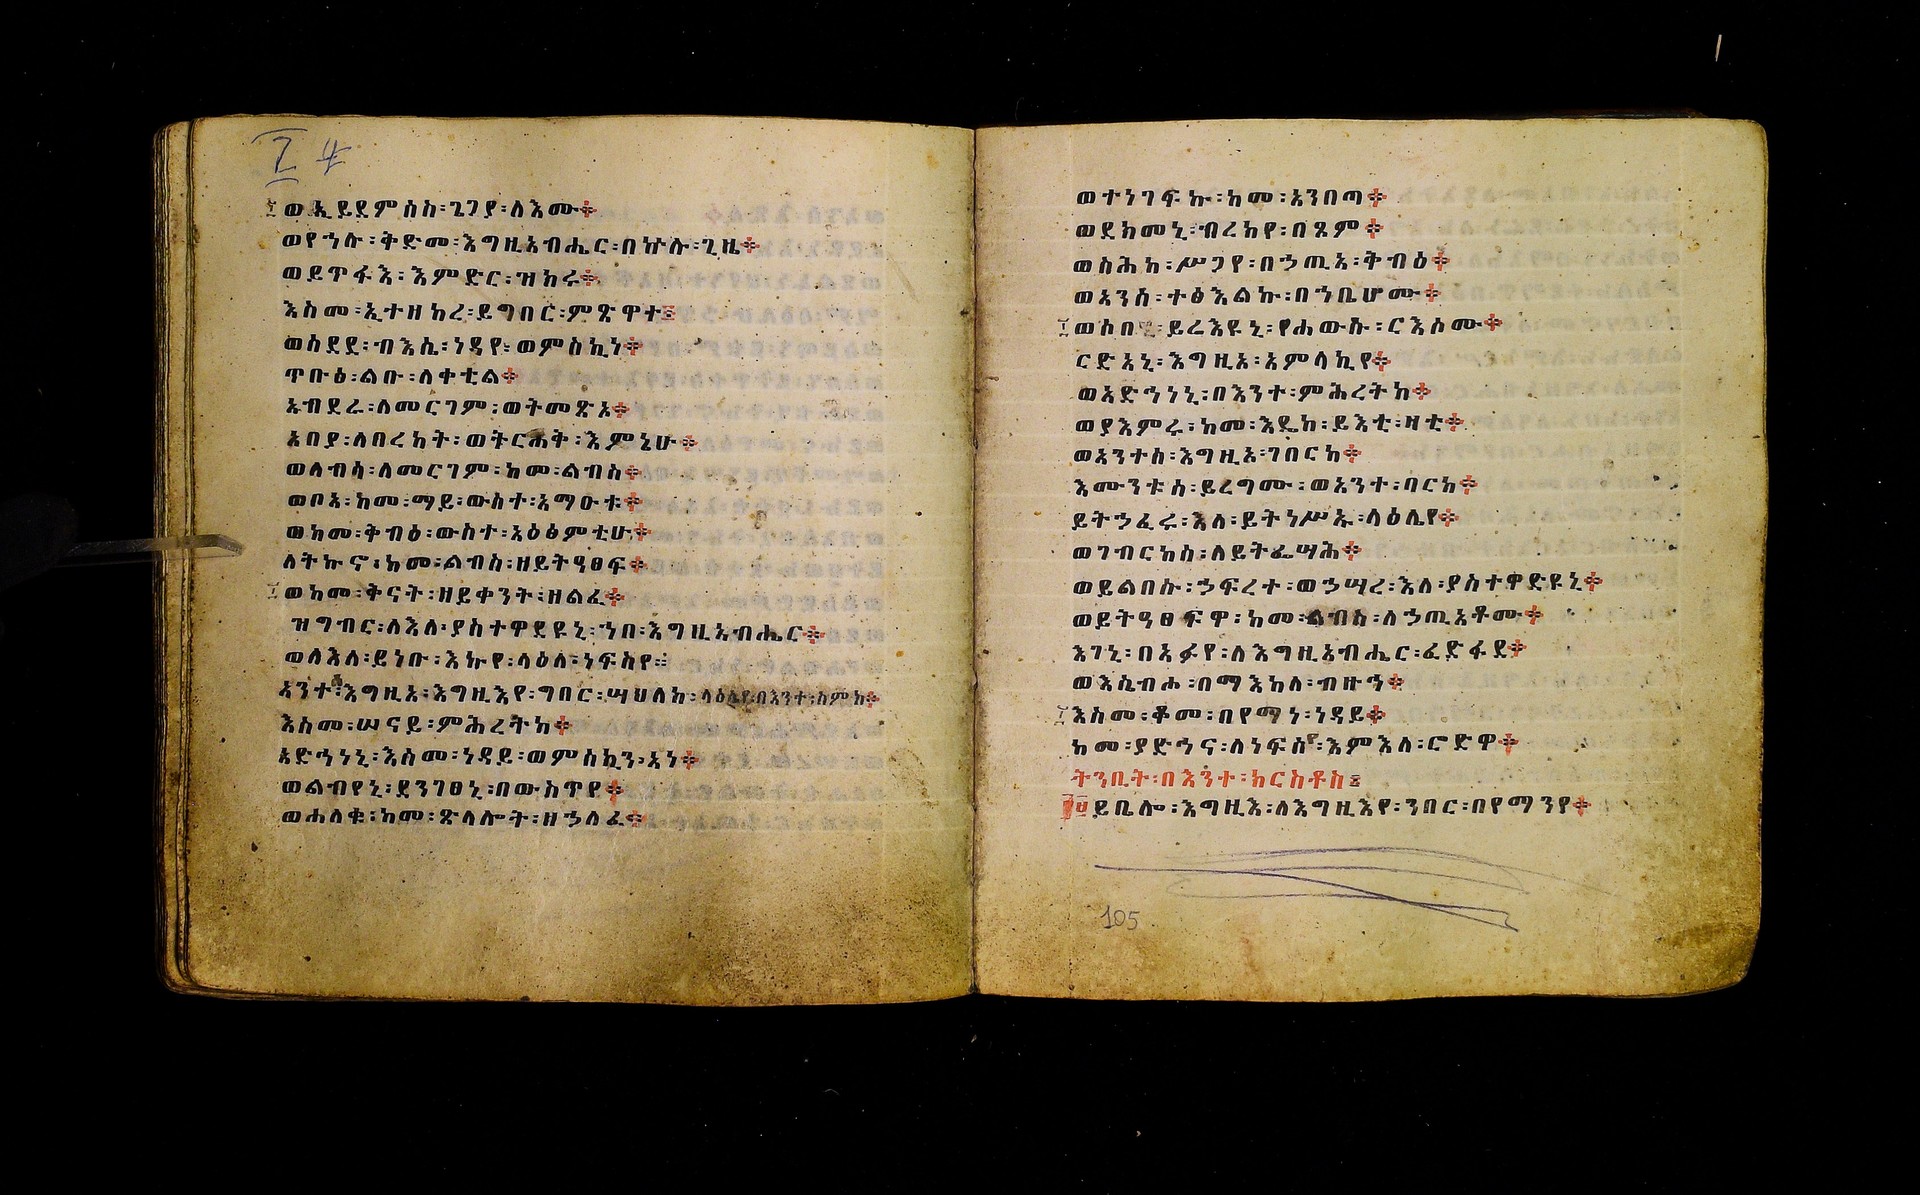 ወኢይደምስስ፡ጌጋያ፡ለእሙ፨
ወየኀሉ፡ቅድመ፡እግዚአብሔር፡በኵሉ፡ጊዜ፨
ወይጥፋእ፡እምድር፡ዝክሩ፨
እስመ፡ኢተዘከረ፡ይግበር፡ምጽዋተ፨
ወሰደደ፡ብእሴ፡ነዳየ፡ወምስኪነ፨
ጥቡዕ፡ልቡ፡ለቀቲል፨
አብደራ፡ለመርገም፡ወትመጽኦ፨
አበያ፡ለበረከት፡ወትርሕቅ፡እምኔሁ፨
ወለብሳ፡ለመርገም፡ከመ፡ልብስ፨
ወቦአ፡ከመ፡ማይ፡ውስተ፡አማዑቱ፨
ወከመ፡ቅብዕ፡ውስተ፡አዕፅምቲሁ፨
ለትኩኖ፡ከመ፡ልብስ፡ዘይትዓፀፍ፨
ወከመ፡ቅናት፡ዘይቀንት፡ዘልፈ፨
ዝግብር፡ለእለ፡ያስተዋደዩኒ፡ኀበ፡እግዚአብሔር፨
ወለእለ፡ይነቡ፡እኩየ፡ላዕለ፡ነፍስየ፨
አንተ፡እግዚኦ፡እግዚእየ፡ግበር፡ሣህለከ፡ላዕሌየ፡በእንተ፡ስምከ፨
እስመ፡ሠናይ፡ምሕረትከ፨
አድኅነኒ፡እስመ፡ነዳይ፡ወምስኪን፡አነ፨
ወልብየኒ፡ደንገፀኒ፡በውስጥየ፨
ወሐለቁ፡ከመ፡ጽላሎት፡ዘኃለፈ፨
ወተነገፍኩ፡ከመ፡አንበጣ፨
ወደክመኒ፡ብረክየ፡በጾም፨
ወስሕከ፡ሥጋየ፡በኃጢአ፡ቅብዕ፨
ወአንሰ፡ተፅእልኩ፡በኀቤሆሙ፨
ወሶበ፡ይሬእዩኒ፡የሐውሱ፡ርእሶሙ፨
ርድአኒ፡እግዚኦ፡አምላኪየ፨
ወአድኅነኒ፡በእንተ፡ምሕረትከ፨
ወያእምሩ፡ከመ፡እዴከ፡ይእቲ፡ዛቲ፨
ወአንተሰ፡እግዚኦ፡ገበርከ፨
እሙንቱሰ፡ይረግሙ፡ወአንተ፡ባርክ፨
ይትኃፈሩ፡እለ፡ይትነሥኡ፡ላዕሌየ፨
ወገብርከሰ፡ለይትፌሣሕ፨
ወይልበሱ፡ኃፍረተ፡ወኃሣረ፡እለ፡ያስተዋድዩኒ፨
ወይትዓፀፍዋ፡ከመ፡ልብስ፡ለኃጢአቶሙ፨
እገኒ፡በአፉየ፡ለእግዚአብሔር፡ፈድፋደ፨
ወእሴብሖ፡በማእከለ፡ብዙኅ፨
እስመ፡ቆመ፡በየማነ፡ነዳይ፨
ከመ፡ያድኅና፡ለነፍስየ፡እምእለ፡ሮድዋ፨
ትንቢት፡በእንተ፡ክርስቶስ፨
፻፱ይቤሎ፡እግዚእ፡ለእግዚእየ፡ንበር፡በየማንየ፨
105